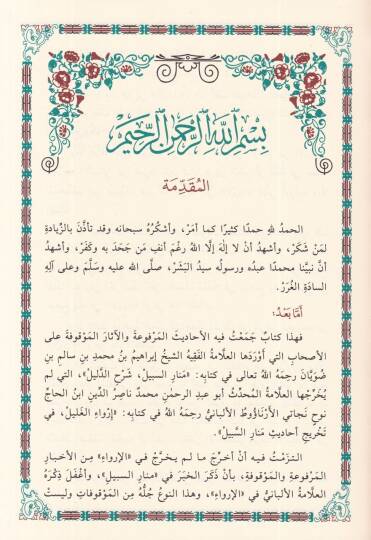 بِسْمِ اللَّهِ الرَّحْمَٰنِ الرَّحِيمِ
المُقَدِّمَة
الحمدُ للهِ حمدًا كثيرًا كما أمَرْ، وأشكُرُهُ سبحانه وقد تأذَّنَ بالزِّيادةِ
لمَنْ شَكَرْ، وأشهدُ أنْ لا إلهَ إلَّا اللهُ رغْمَ أنفِ مَن جَحَدَ به وكَفَرْ، وأشهدُ
أنَّ نبيَّنا محمدًا عبدُه ورسولُه سيدُ البَشَرْ، صلَّى الله عليه وسَلَّمَ وعلى آلِهِ
السادَةِ الغُرَرْ.
أمَّا بَعدُ:
فهذا كتابٌ جَمَعْتُ فيه الأحاديثَ المَرْفوعةَ والآثارَ المَوْقوفةَ على
الأصحابِ التي أوْرَدَها العلَّامةُ الفَقِيهُ الشيخُ إبراهيمُ بنُ محمدِ بنِ سالمِ بنِ
ضُوَيَّانَ رحِمَهُ اللهُ تعالى في كتابِه: «مَنارِ السبيلِ، شَرْحِ الدَّليلِ»، التي لم
يُخَرِّجْها العلامةُ المُحدِّثُ أبو عبدِ الرحمنِ محمدٌ ناصرُ الدِّينِ ابنُ الحاجِّ
نوحٍ نَجاتي الأَرْناؤُوطُ الألبانيُّ رحِمَهُ اللهُ في كتابِهِ: «إرْواءِ الغَليلْ، في
تَخْريجِ أحاديثِ مَنارِ السَّبيلْ».
التزمْتُ فيه أنْ أخرِّجَ ما لم يخرَّجْ في «الإرواءِ» مِن الأخبارِ
المَرْفوعةِ والمَوْقوفةِ، بأنْ ذَكَرَ الخبَرَ في «منارِ السبيلِ»، وأغْفَلَ ذِكرَهُ
العلَّامةُ الألبانيُّ في «الإرواءِ»، وهذا النوعُ جُلُّهُ مِن المَوْقوفاتِ وليستْ